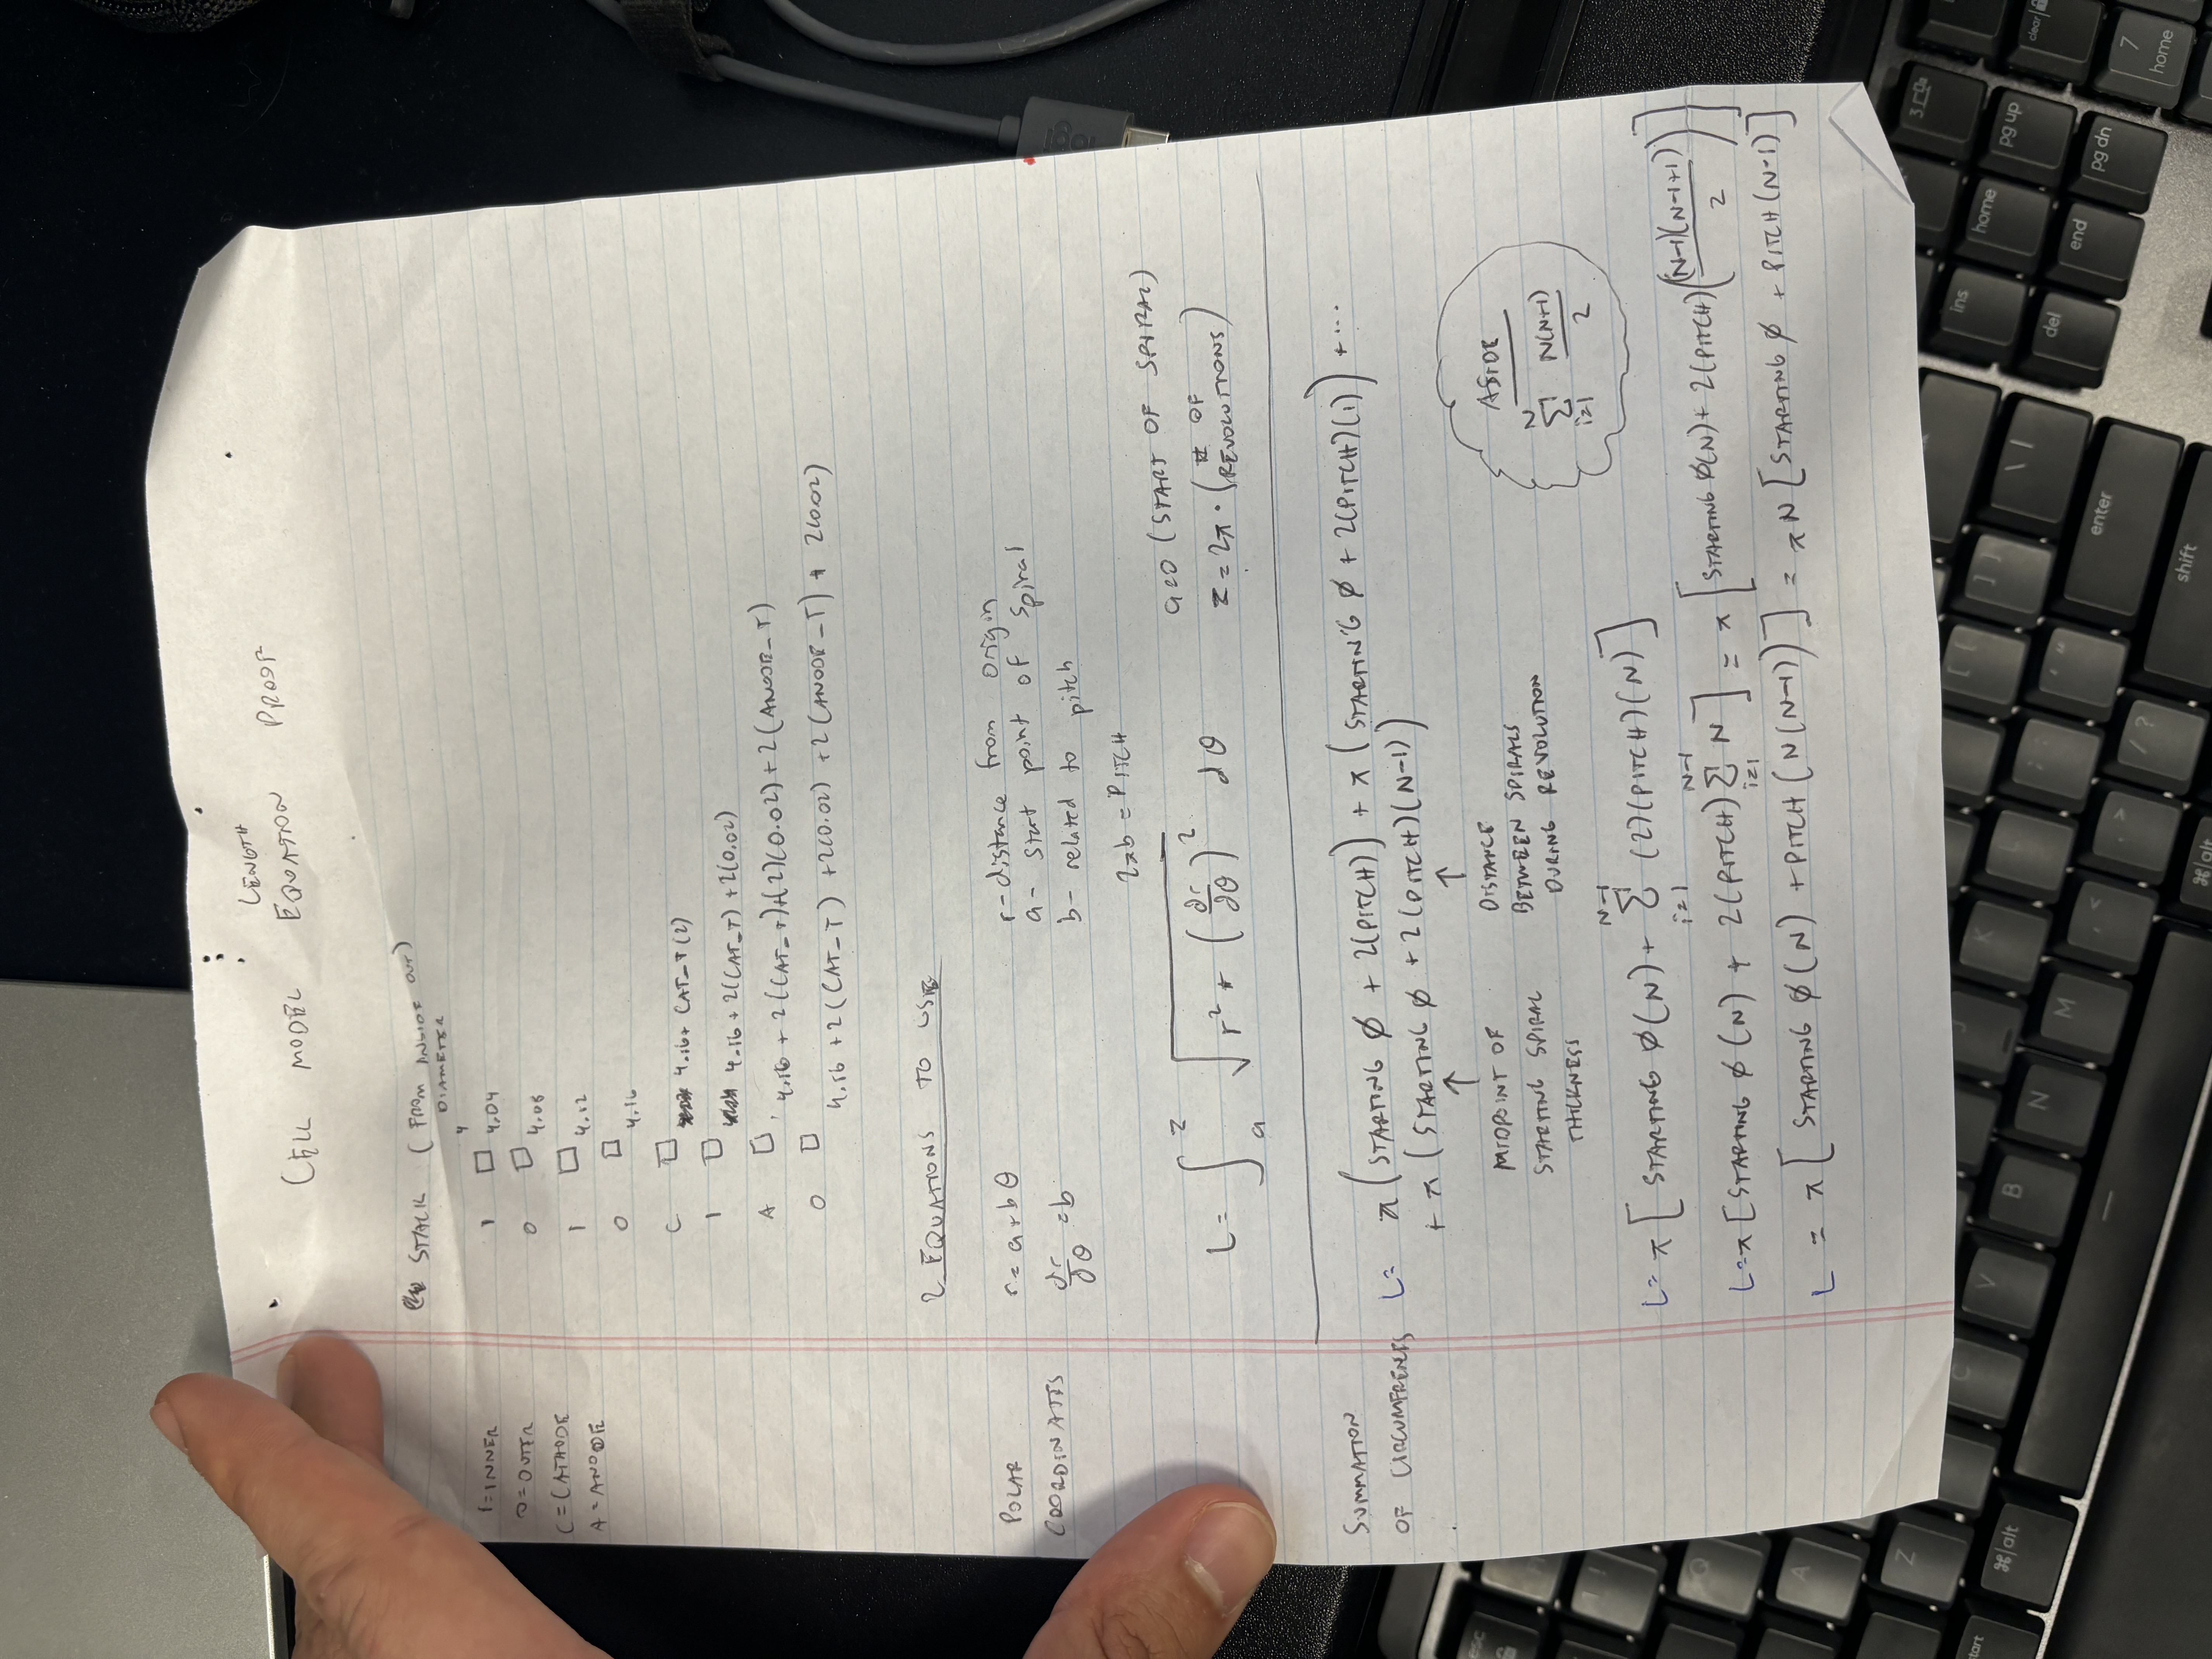 LENGTH
CELL MODEL EQUATION PROOF
STACK (FROM INSIDE OUT)
DIAMETER
4
1=INNER
O=OUTER
C=CATHODE
A=ANODE
1 □ 4.04
O □ 4.08
1 □ 4.12
O □ 4.16
C □ 4.16+ CAT_T(2)
1 □ 4.16+2(CAT_T)+2(0.02)
A □ 4.16+2(CAT_T)+(2)(0.02)+2(ANODE_T)
O □ 4.16+2(CAT_T)+2(0.02)+2(ANODE_T)+2(0.02)
2 EQUATIONS TO USE
POLAR
COORDINATES
r=a+bθ
dr/dθ =b
r-distance from origin
a- start point of spiral
b- related to pitch
2πb=PITCH
L= ∫_a^z √(r²+(dr/dθ)²) dθ
a=0 (START OF SPIRAL)
z=2π·(# OF REVOLUTIONS)
SUMMATION
OF CIRCUMFRENCES
L= π(STARTING Ø + 2(PITCH)) + π(STARTING Ø + 2(PITCH)(1)) + ...
+ π(STARTING Ø + 2(PITCH)(N-1))
↑ ↑
MIDPOINT OF
STARTING SPIRAL
THICKNESS
DISTANCE
BETWEEN SPIRALS
DURING REVOLUTION
ASIDE
N
Σ N(N+1)/2
i=1
L= π[STARTING Ø(N)+ Σ_{i=1}^{N-1} (2)(PITCH)(N)]
L=π[STARTING Ø(N) + 2(PITCH) Σ_{i=1}^{N-1} N] = π[STARTING Ø(N)+ 2(PITCH)((N-1)(N-1+1)/2)]
L = π[STARTING Ø(N) +PITCH(N(N-1))] = πN[STARTING Ø + PITCH(N-1)]
esc
start
Z
⌘/alt
C
V
B
N
M
J
K
Q
A
, <
. >
/ ?
[ {
] }
\ |
enter
shift
⌘/alt
ins
home
pg up
del
end
pg dn
clear
7
home